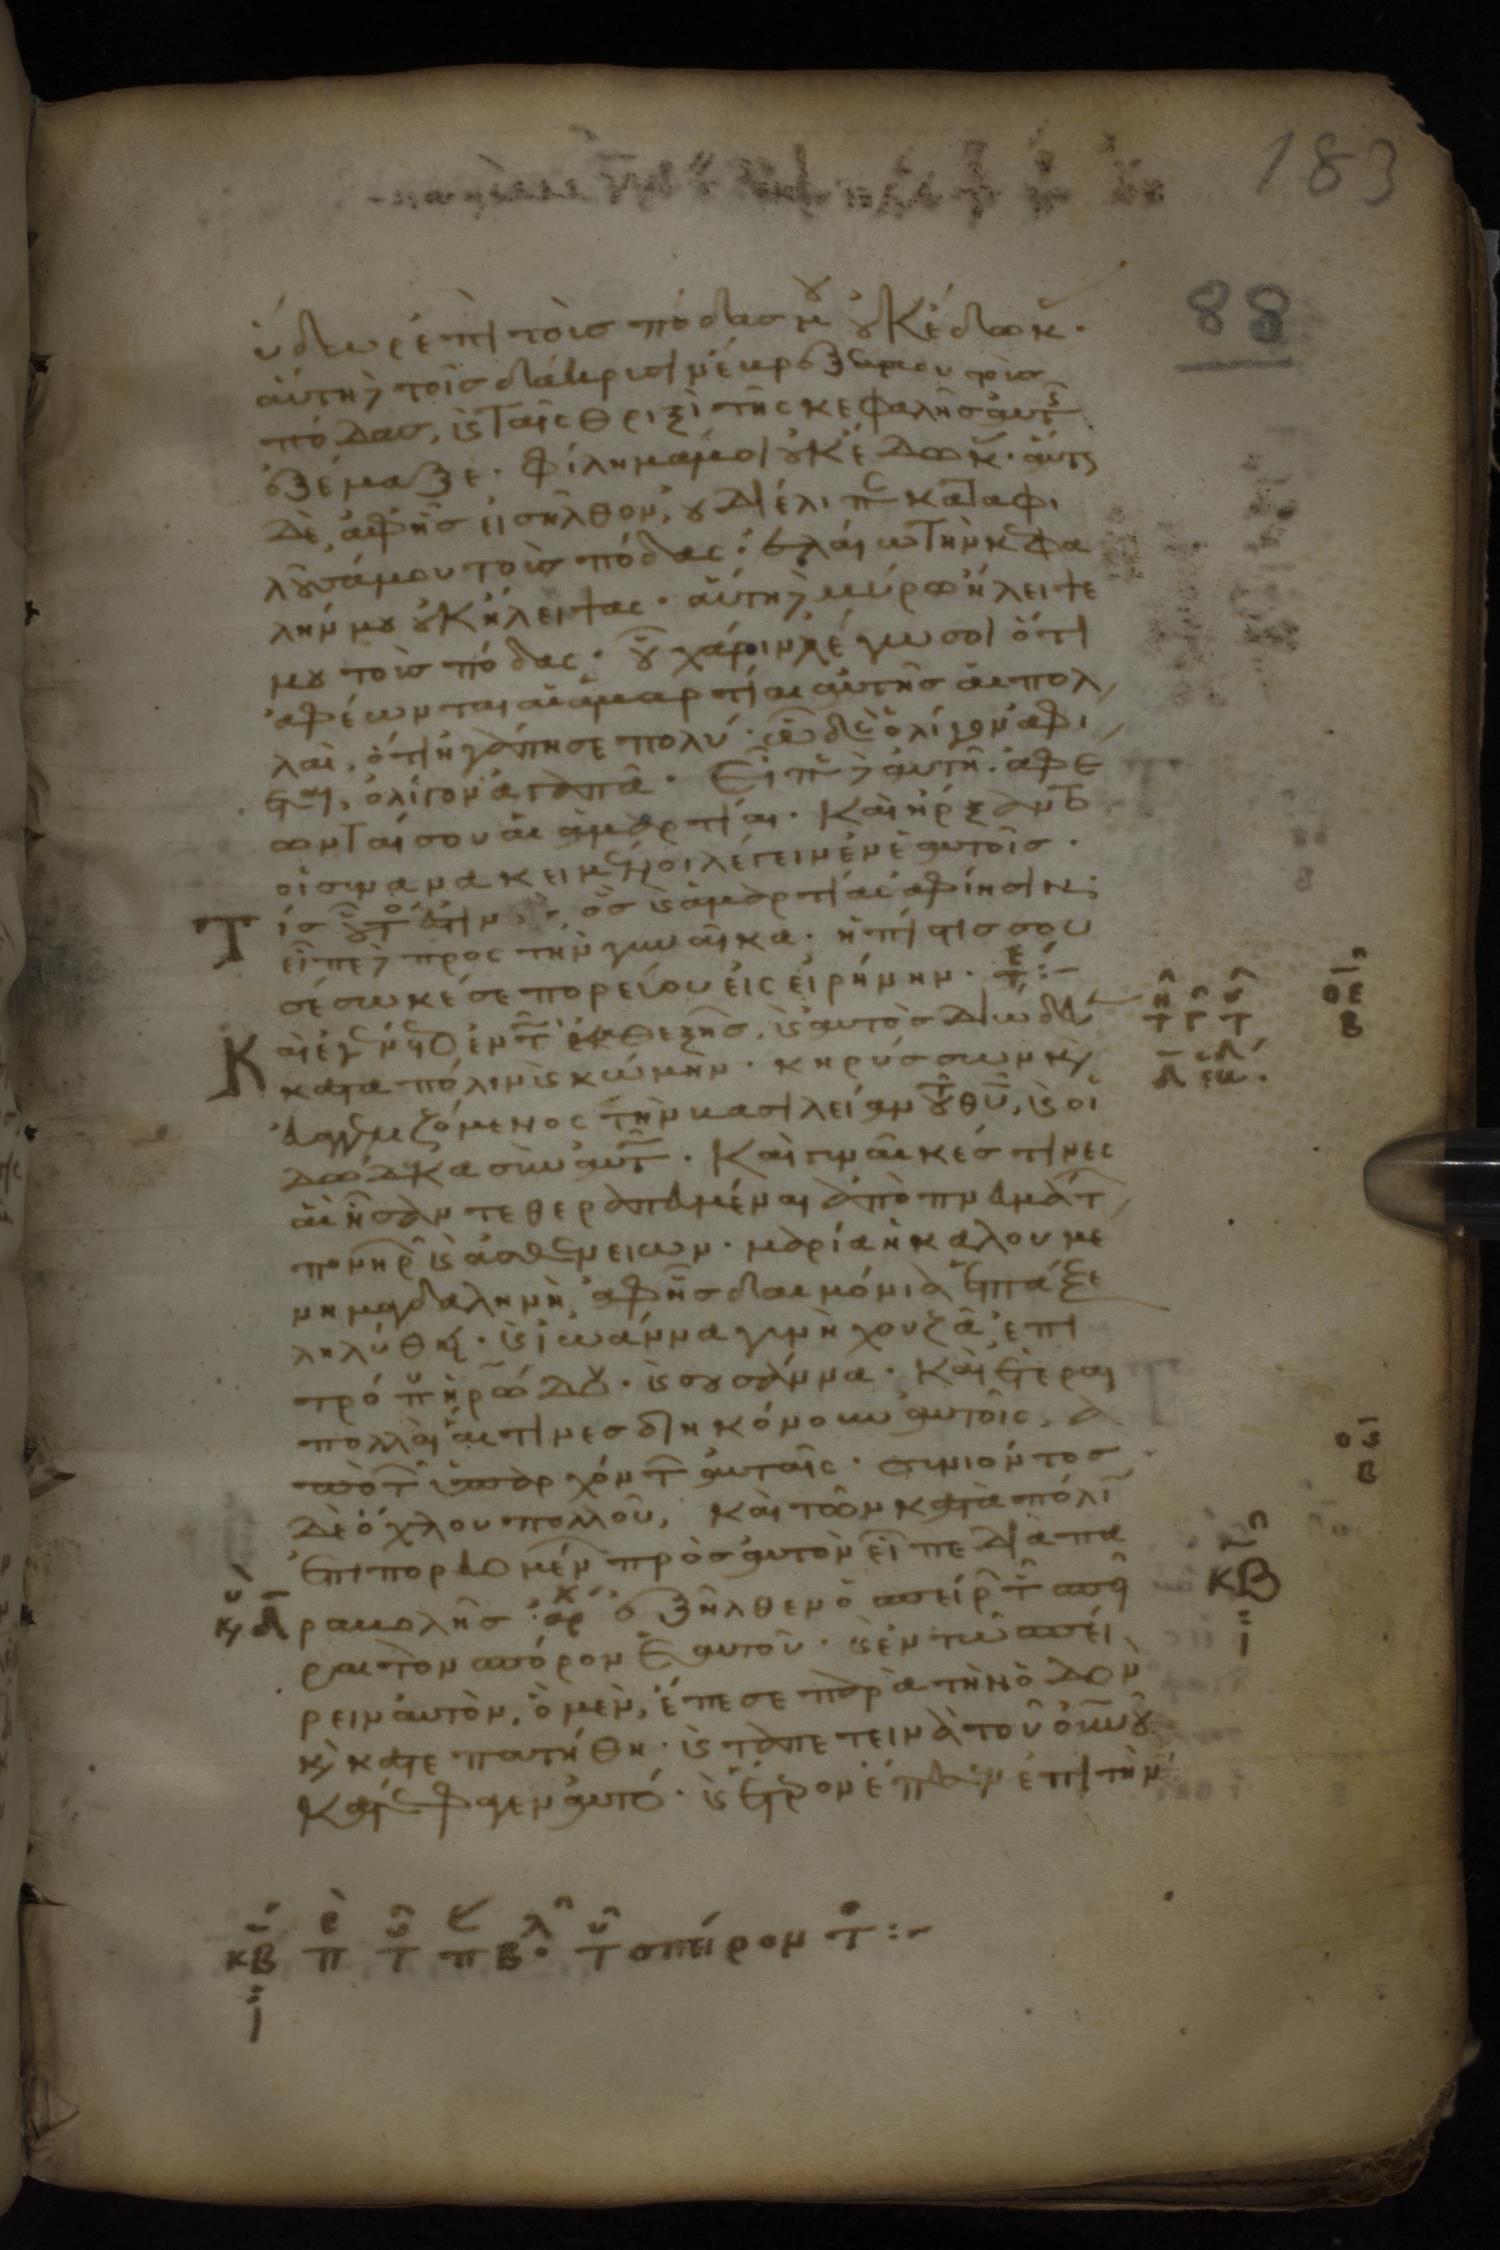 183
88
ὕδωρ ἐπὶ τοὺς πόδας μου οὐκ ἔδωκ
αὕτη δὲ τοῖς δάκρυσιν ἔβρεξέ μου τοὺς
πόδας, καὶ ταῖς θριξὶ τῆς κεφαλῆς αὐτῆς
ἐξέμαξε· φίλημά μοι οὐκ ἔδωκ· αὕτη
δὲ ἀφ ἧς εἰσῆλθον, οὐ διέλιπε καταφι
λοῦσά μου τοὺς πόδας· ἐλαίω τὴν κεφα
λήν μου οὐκ ἤλειψας· αὕτη δὲ μύρω ἤλειψε
μου τοὺς πόδας· οὗ χάριν λέγω σοι ὅτι
ἀφέωνται αἱ ἁμαρτίαι αὐτῆς αἱ πολ
λαί, ὅτι ἠγάπησε πολύ· ὧ δὲ ὀλίγον ἀφί
εται, ὀλίγον ἀγαπᾶ· εἶπε δὲ αὐτῆ· ἀφέ
ωνταί σου αἱ ἁμαρτίαι· καὶ ἤρξαντο
οἱ συνανακείμενοι λέγειν ἐν ἑαυτοῖς·
Τίς οὗτός ἐστιν, ὃς καὶ ἁμαρτίας ἀφίησιν;
εἶπε δὲ πρὸς τὴν γυναῖκα· ἡ πίστις σου
σέσωκέ σε πορεύου εἰς εἰρήνην· τε:-
Καὶ ἐγένετο ἐν τῶ καθεξῆς, καὶ αὐτὸς διώδευ
κατὰ πόλιν καὶ κώμην· κηρύσσων καὶ
εὐαγγελιζόμενος τὴν βασιλείαν τοῦ θυ, καὶ οἱ
δώδεκα σὺν αὐτῶ· Καὶ γυναῖκές τινες
αἳ ἦσαν τεθεραπευμέναι ἀπὸ πνευμάτ
πονηρ καὶ ἀσθενειῶν· μαρία ἡ καλουμέ
νη μαγδαληνή, ἀφ ἧς δαιμόνια ἑπτὰ ἐξε
ληλύθει· καὶ ἰωάννα γυνὴ χουζᾶ ἐπι
τρόπου ἡρώδου· καὶ σουσάννα· Καὶ ἕτεραι
πολλαὶ αἵτινες διηκόνουν αὐτοῖς, ἀ
πὸ τῶν ὑπαρχόντ αὐταῖς· συνιόντος
δὲ ὄχλου πολλοῦ, καὶ τῶν κατὰ πόλιν
ἐπιπορευομένων πρὸς αὐτὸν εἶπε διὰ πα
ραβολῆς· αρχ ἐξῆλθεν ὁ σπείρων τοῦ σπεῖ
ραι τὸν σπόρον ἑαυτοῦ· καὶ ἐν τῶ σπεί
ρειν αὐτὸν, ὃ μὲν, ἔπεσε παρὰ τὴν ὁδὸν
καὶ κατεπατήθη· καὶ τὰ πετεινὰ τοῦ οὐνοῦ
κατέφαγεν αὐτό· καὶ ἕτερον ἔπεσεν ἐπὶ τὴν
οε
β
ος
β
κβ
ι
κβ π τ π β τ σπείρον τ :-
ι